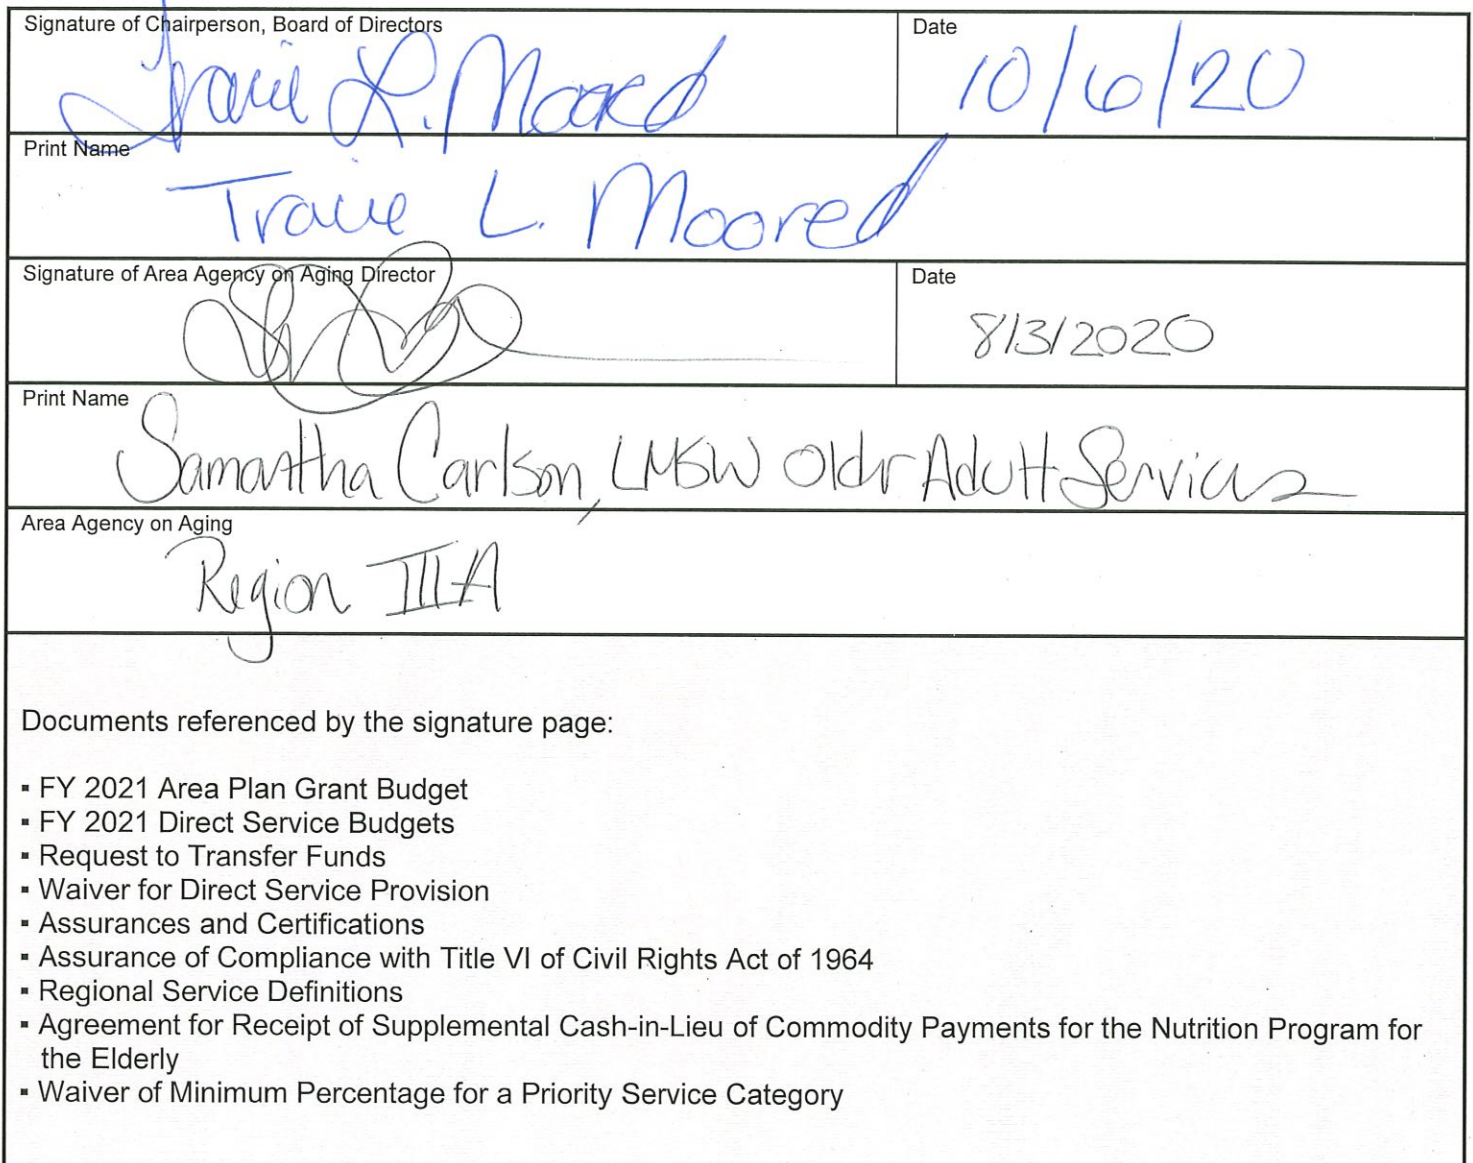 Signature of Chairperson, Board of Directors
Date
Tracie L. Moored
10/6/20
Print Name
Tracie L. Moored
Signature of Area Agency on Aging Director
Date
8/3/2020
Print Name
Samantha Carlson, LMSW Older Adult Services
Area Agency on Aging
Region IIIA
Documents referenced by the signature page:
▪ FY 2021 Area Plan Grant Budget
▪ FY 2021 Direct Service Budgets
▪ Request to Transfer Funds
▪ Waiver for Direct Service Provision
▪ Assurances and Certifications
▪ Assurance of Compliance with Title VI of Civil Rights Act of 1964
▪ Regional Service Definitions
▪ Agreement for Receipt of Supplemental Cash-in-Lieu of Commodity Payments for the Nutrition Program for
the Elderly
▪ Waiver of Minimum Percentage for a Priority Service Category